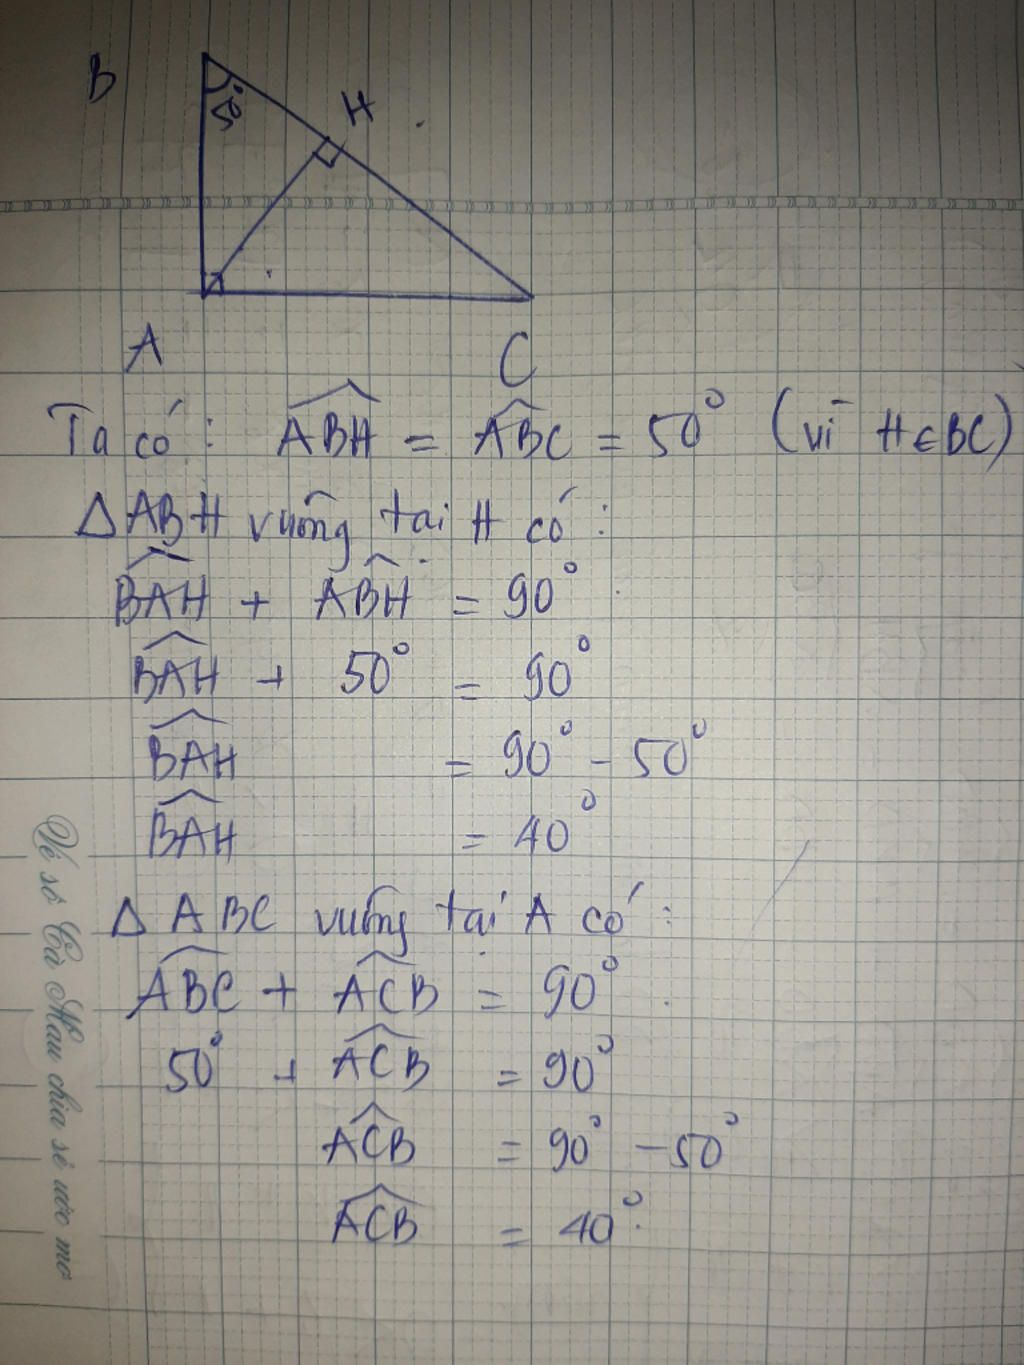 B
50°
H
A
C
Ta có: ABH = ABC = 50° (vì H ∈ BC)
Δ ABH vuông tại H có:
BAH + ABH = 90°
BAH + 50° = 90°
BAH = 90° - 50°
BAH = 40°
Δ ABC vuông tại A có:
ABC + ACB = 90°
50° + ACB = 90°
ACB = 90° - 50°
ACB = 40°.
Vé số Cà Mau chia sẻ ước mơ